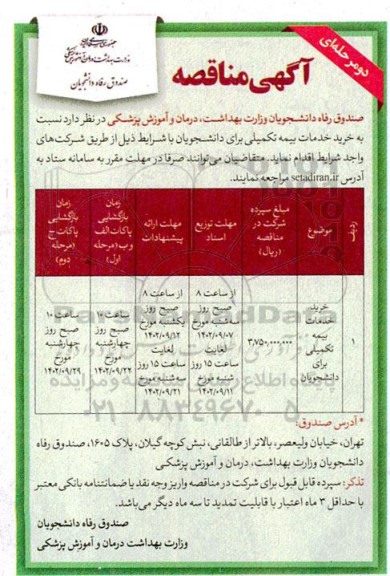 دو مرحله‌ای
آگهی مناقصه
صندوق رفاه دانشجویان
صندوق رفاه دانشجویان وزارت بهداشت، درمان و آموزش پزشکی در نظر دارد نسبت
به خرید خدمات بیمه تکمیلی برای دانشجویان با شرایط ذیل از طریق شرکت‌های
واجد شرایط اقدام نماید. متقاضیان می‌توانند صرفا در مهلت مقرر به سامانه ستاد به
آدرس setadiran.ir مراجعه نمایند.
ردیف
موضوع
مبلغ سپرده
شرکت در
مناقصه
(ریال)
مهلت توزیع
اسناد
مهلت ارائه
پیشنهادات
زمان
بازگشایی
پاکات الف
و ب (مرحله
اول)
زمان
بازگشایی
پاکات ج
(مرحله
دوم)
۱
خرید
خدمات
بیمه
تکمیلی
برای
دانشجویان
۳,۷۵۰,۰۰۰,۰۰۰
از ساعت ۸
صبح روز
سه‌شنبه مورخ
۱۴۰۲/۰۹/۰۷
لغایت
ساعت ۱۵ روز
شنبه مورخ
۱۴۰۲/۰۹/۱۱
از ساعت ۸
صبح روز
یکشنبه مورخ
۱۴۰۲/۰۹/۱۲
لغایت
ساعت ۱۵ روز
سه‌شنبه مورخ
۱۴۰۲/۰۹/۲۱
ساعت ۱۰
صبح روز
چهارشنبه
مورخ
۱۴۰۲/۰۹/۲۲
ساعت ۱۰
صبح روز
چهارشنبه
مورخ
۱۴۰۲/۰۹/۲۹
۰۲۱-۸۸۳۴۹۶۷۰-۵
* آدرس صندوق:
تهران، خیابان ولیعصر، بالاتر از طالقانی، نبش کوچه گیلان، پلاک ۱۶۰۵، صندوق رفاه
دانشجویان وزارت بهداشت، درمان و آموزش پزشکی
تذکر: سپرده قابل قبول برای شرکت در مناقصه واریز وجه نقد یا ضمانتنامه بانکی معتبر
با حداقل ۳ ماه اعتبار با قابلیت تمدید تا سه ماه دیگر می‌باشد.
صندوق رفاه دانشجویان
وزارت بهداشت درمان و آموزش پزشکی